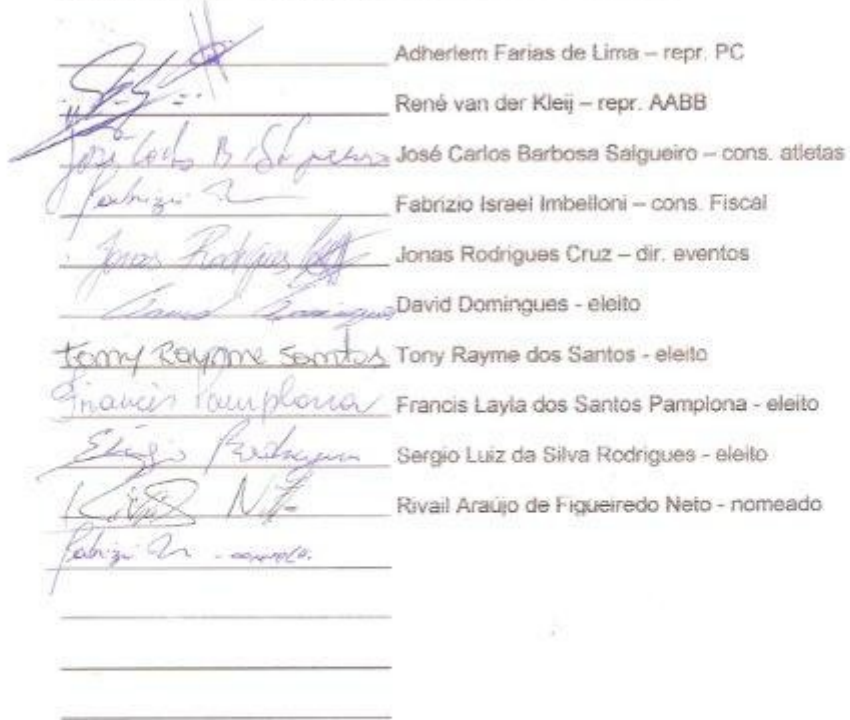 Adherlem Farias de Lima – repr. PC
René van der Kleij – repr. AABB
José Carlos B Salgueiro José Carlos Barbosa Salgueiro – cons. atletas
Fabrizio Fabrizio Israel Imbelloni – cons. Fiscal
Jonas Rodrigues Jonas Rodrigues Cruz – dir. eventos
David Domingues David Domingues - eleito
Tony Rayme Santos Tony Rayme dos Santos - eleito
Francis Pamplona Francis Layla dos Santos Pamplona - eleito
Sérgio Rodrigues Sergio Luiz da Silva Rodrigues - eleito
Rivail Neto Rivail Araújo de Figueiredo Neto - nomeado
Fabrizio